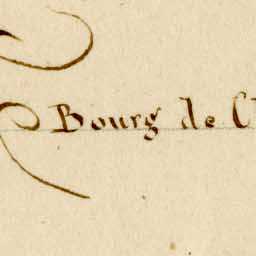 Bourg de C